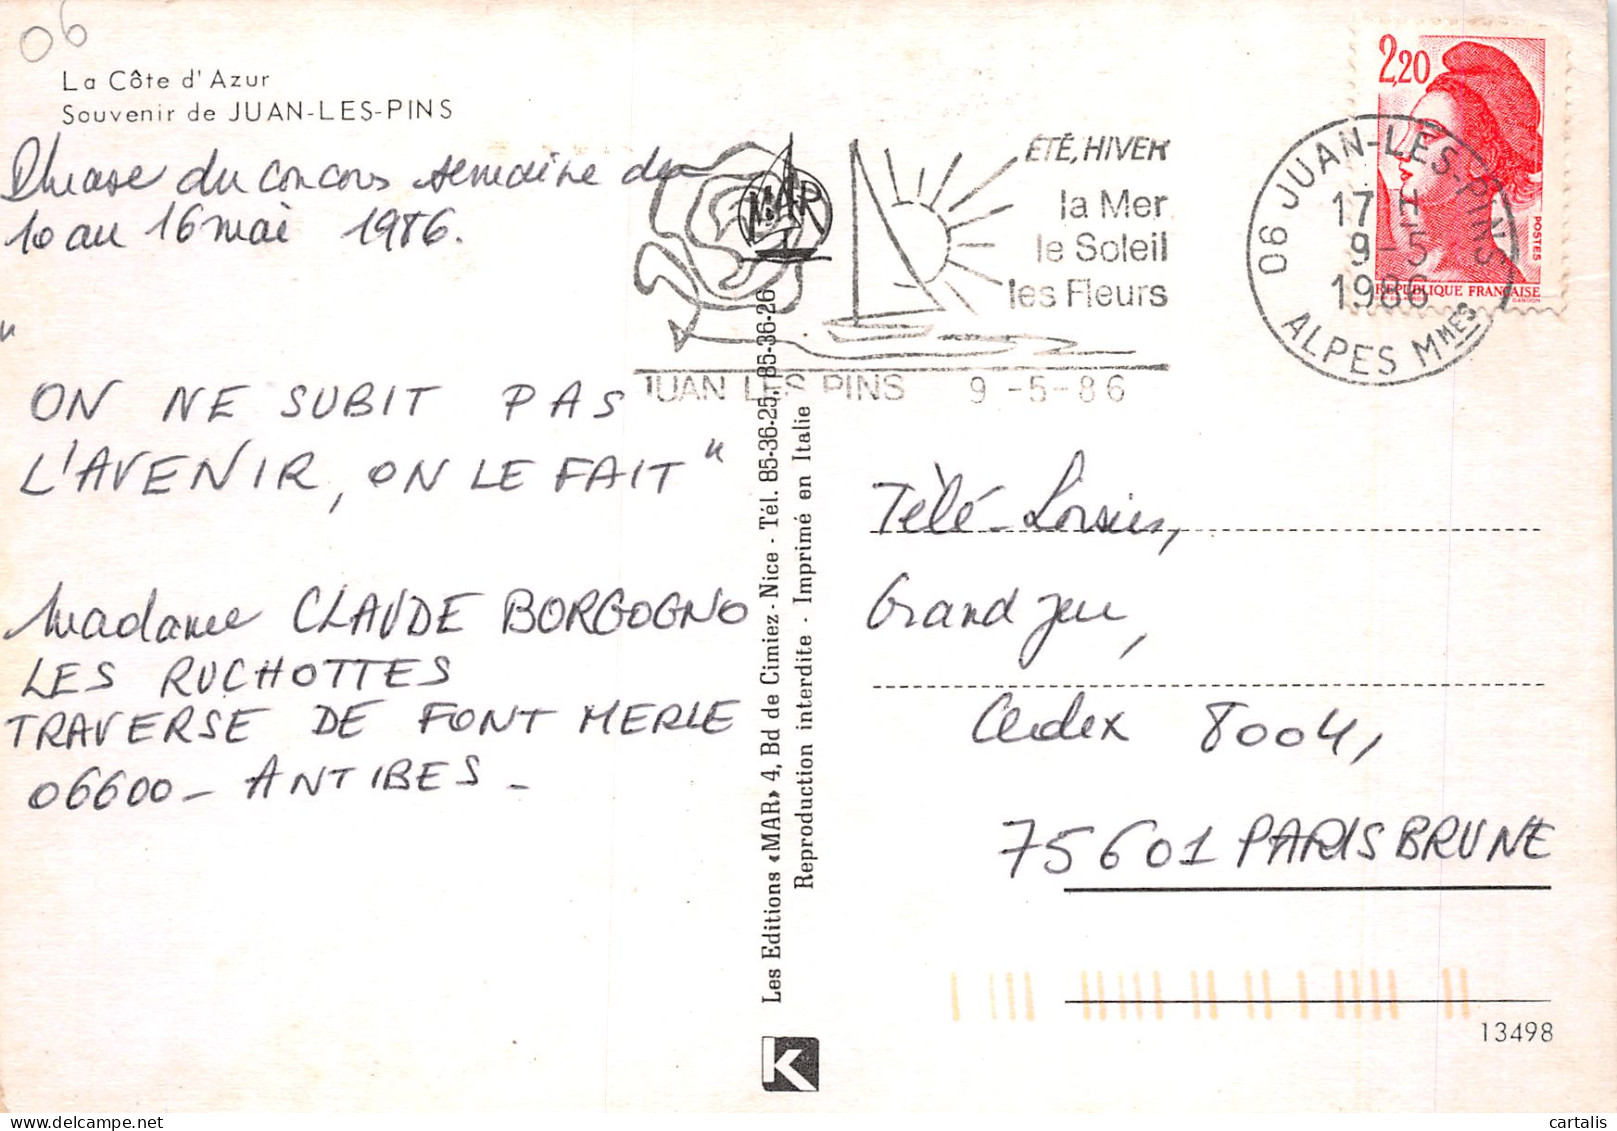 06
La Côte d'Azur
Souvenir de JUAN-LES-PINS
Phrase du concours semaine du
10 au 16 mai 1986.
"
ON NE SUBIT PAS
L'AVENIR, ON LE FAIT"
Madame CLAUDE BORGOGNO
LES RUCHOTTES
TRAVERSE DE FONT MERLE
06600 - ANTIBES -
MAR
ÉTÉ, HIVER
la Mer
le Soleil
les Fleurs
JUAN LES PINS 9 -5-86
2,20
POSTES
REPUBLIQUE FRANÇAISE
GANDON
06 JUAN-LES-PINS
17 H
9-5
1986
ALPES MMES
Les Editions «MAR» 4, Bd de Cimiez - Nice - Tél. 85-36-25, 85-36-26
Reproduction interdite - Imprimé en Italie
Télé-Loisirs,
Grand jeu,
Cedex 8004,
75601 PARIS BRUNE
13498
K
cartalis